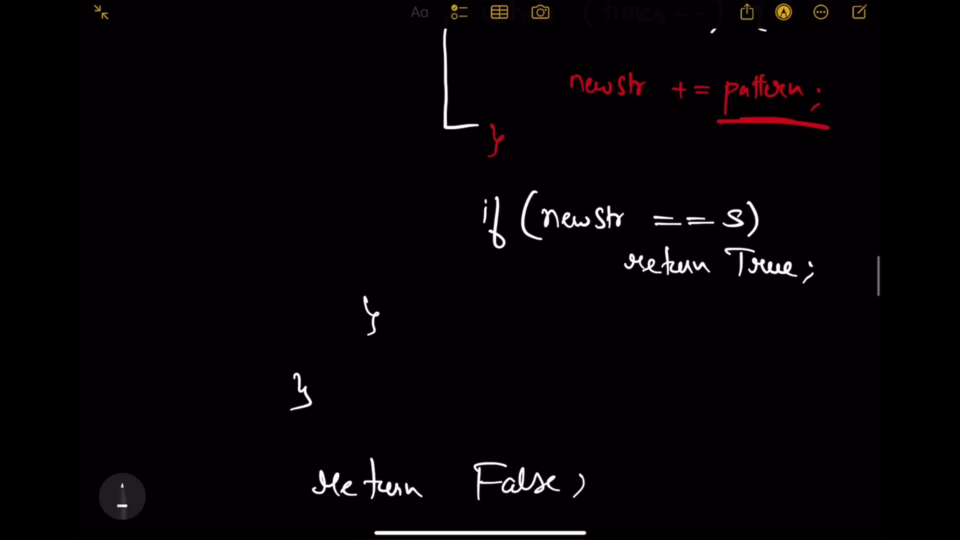 Aa
(times--)
newstr += pattern;
}
if (newstr == s)
return True;
}
}
return False;